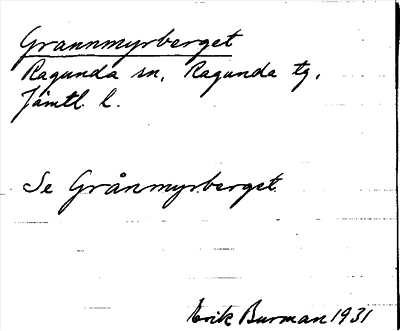 Grannmyrberget
Ragunda sn, Ragunda tg,
Jämtl. l.
Se Grånmyrberget
Erik Burman 1931